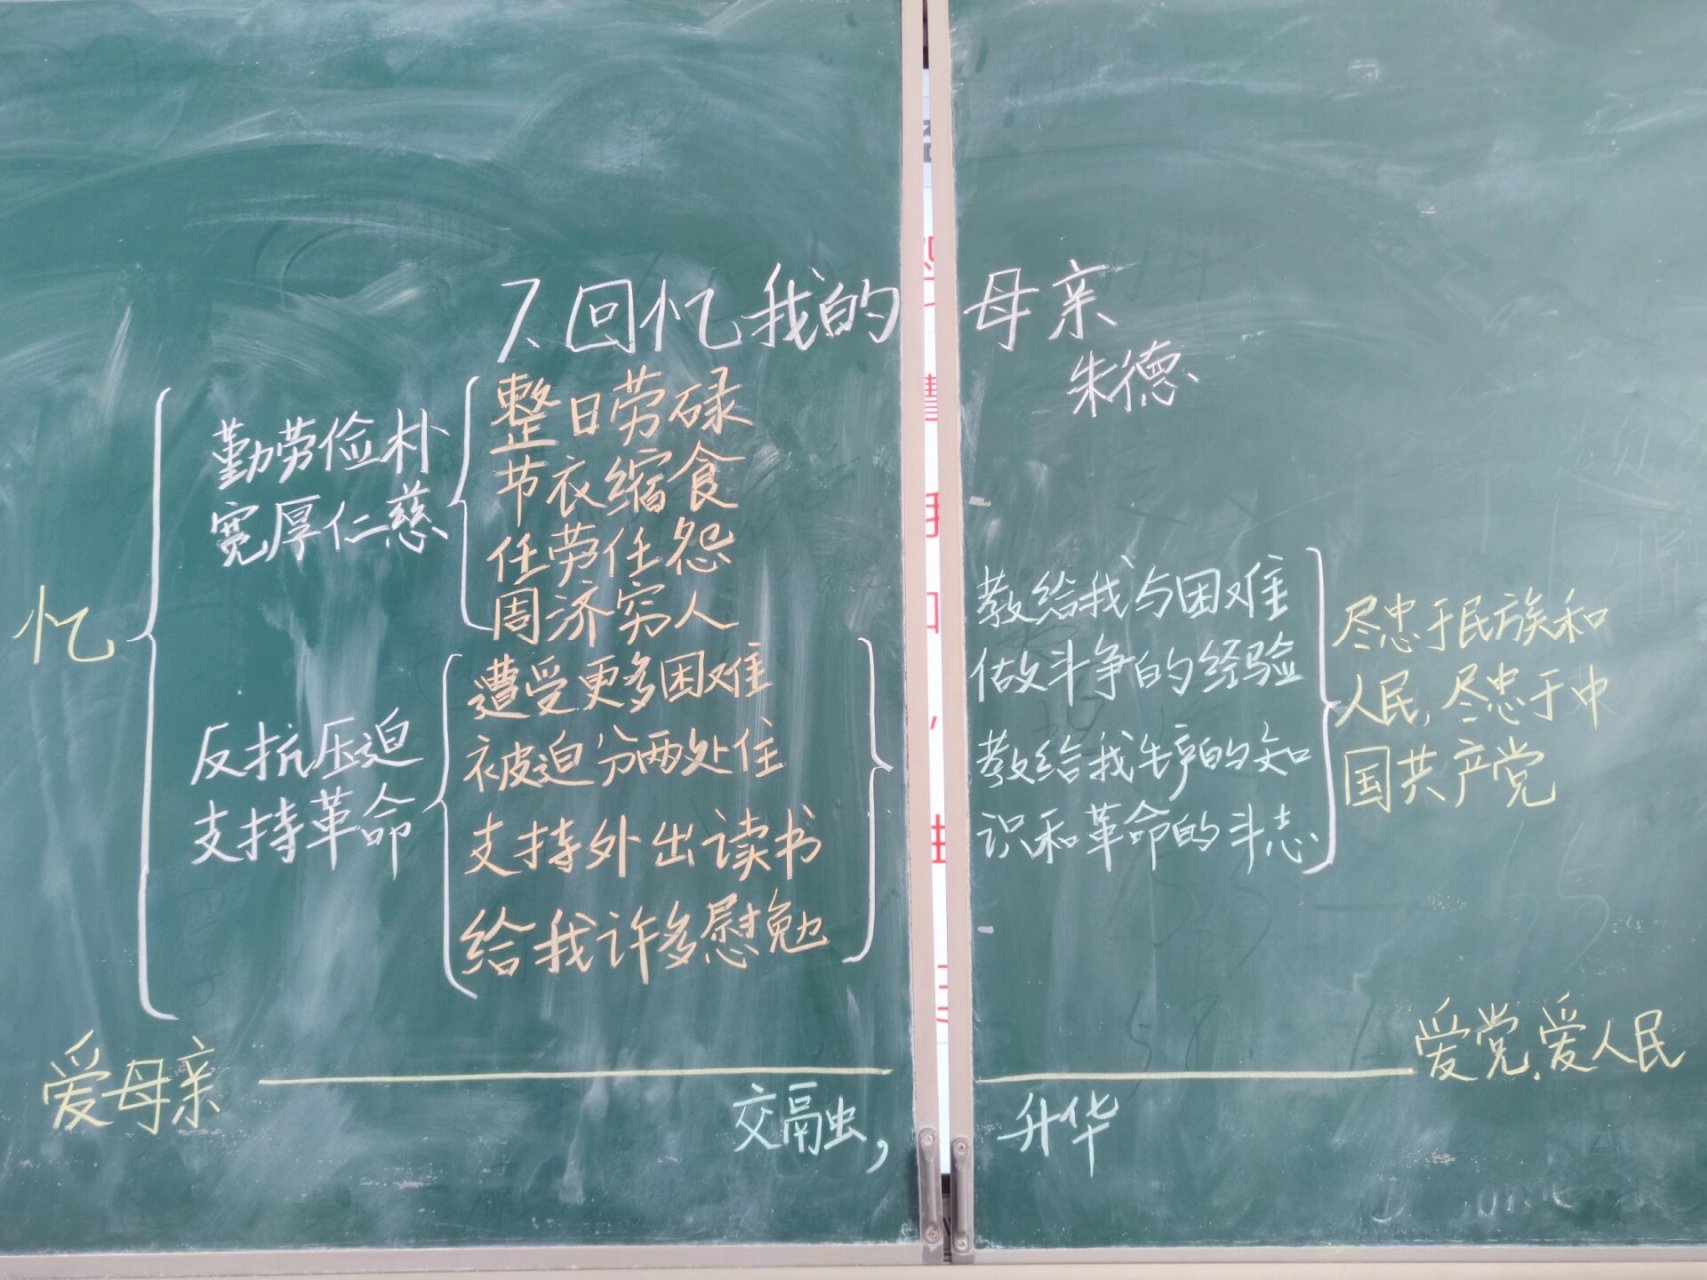 7、回忆我的母亲
朱德
忆
勤劳俭朴
宽厚仁慈
整日劳碌
节衣缩食
任劳任怨
周济穷人
反抗压迫
支持革命
遭受更多困难
被迫分两处住
支持外出读书
给我许多慰勉
教给我与困难
做斗争的经验
教给我生产的知
识和革命的斗志
尽忠于民族和
人民,尽忠于中
国共产党
爱母亲
爱党,爱人民
交融,升华